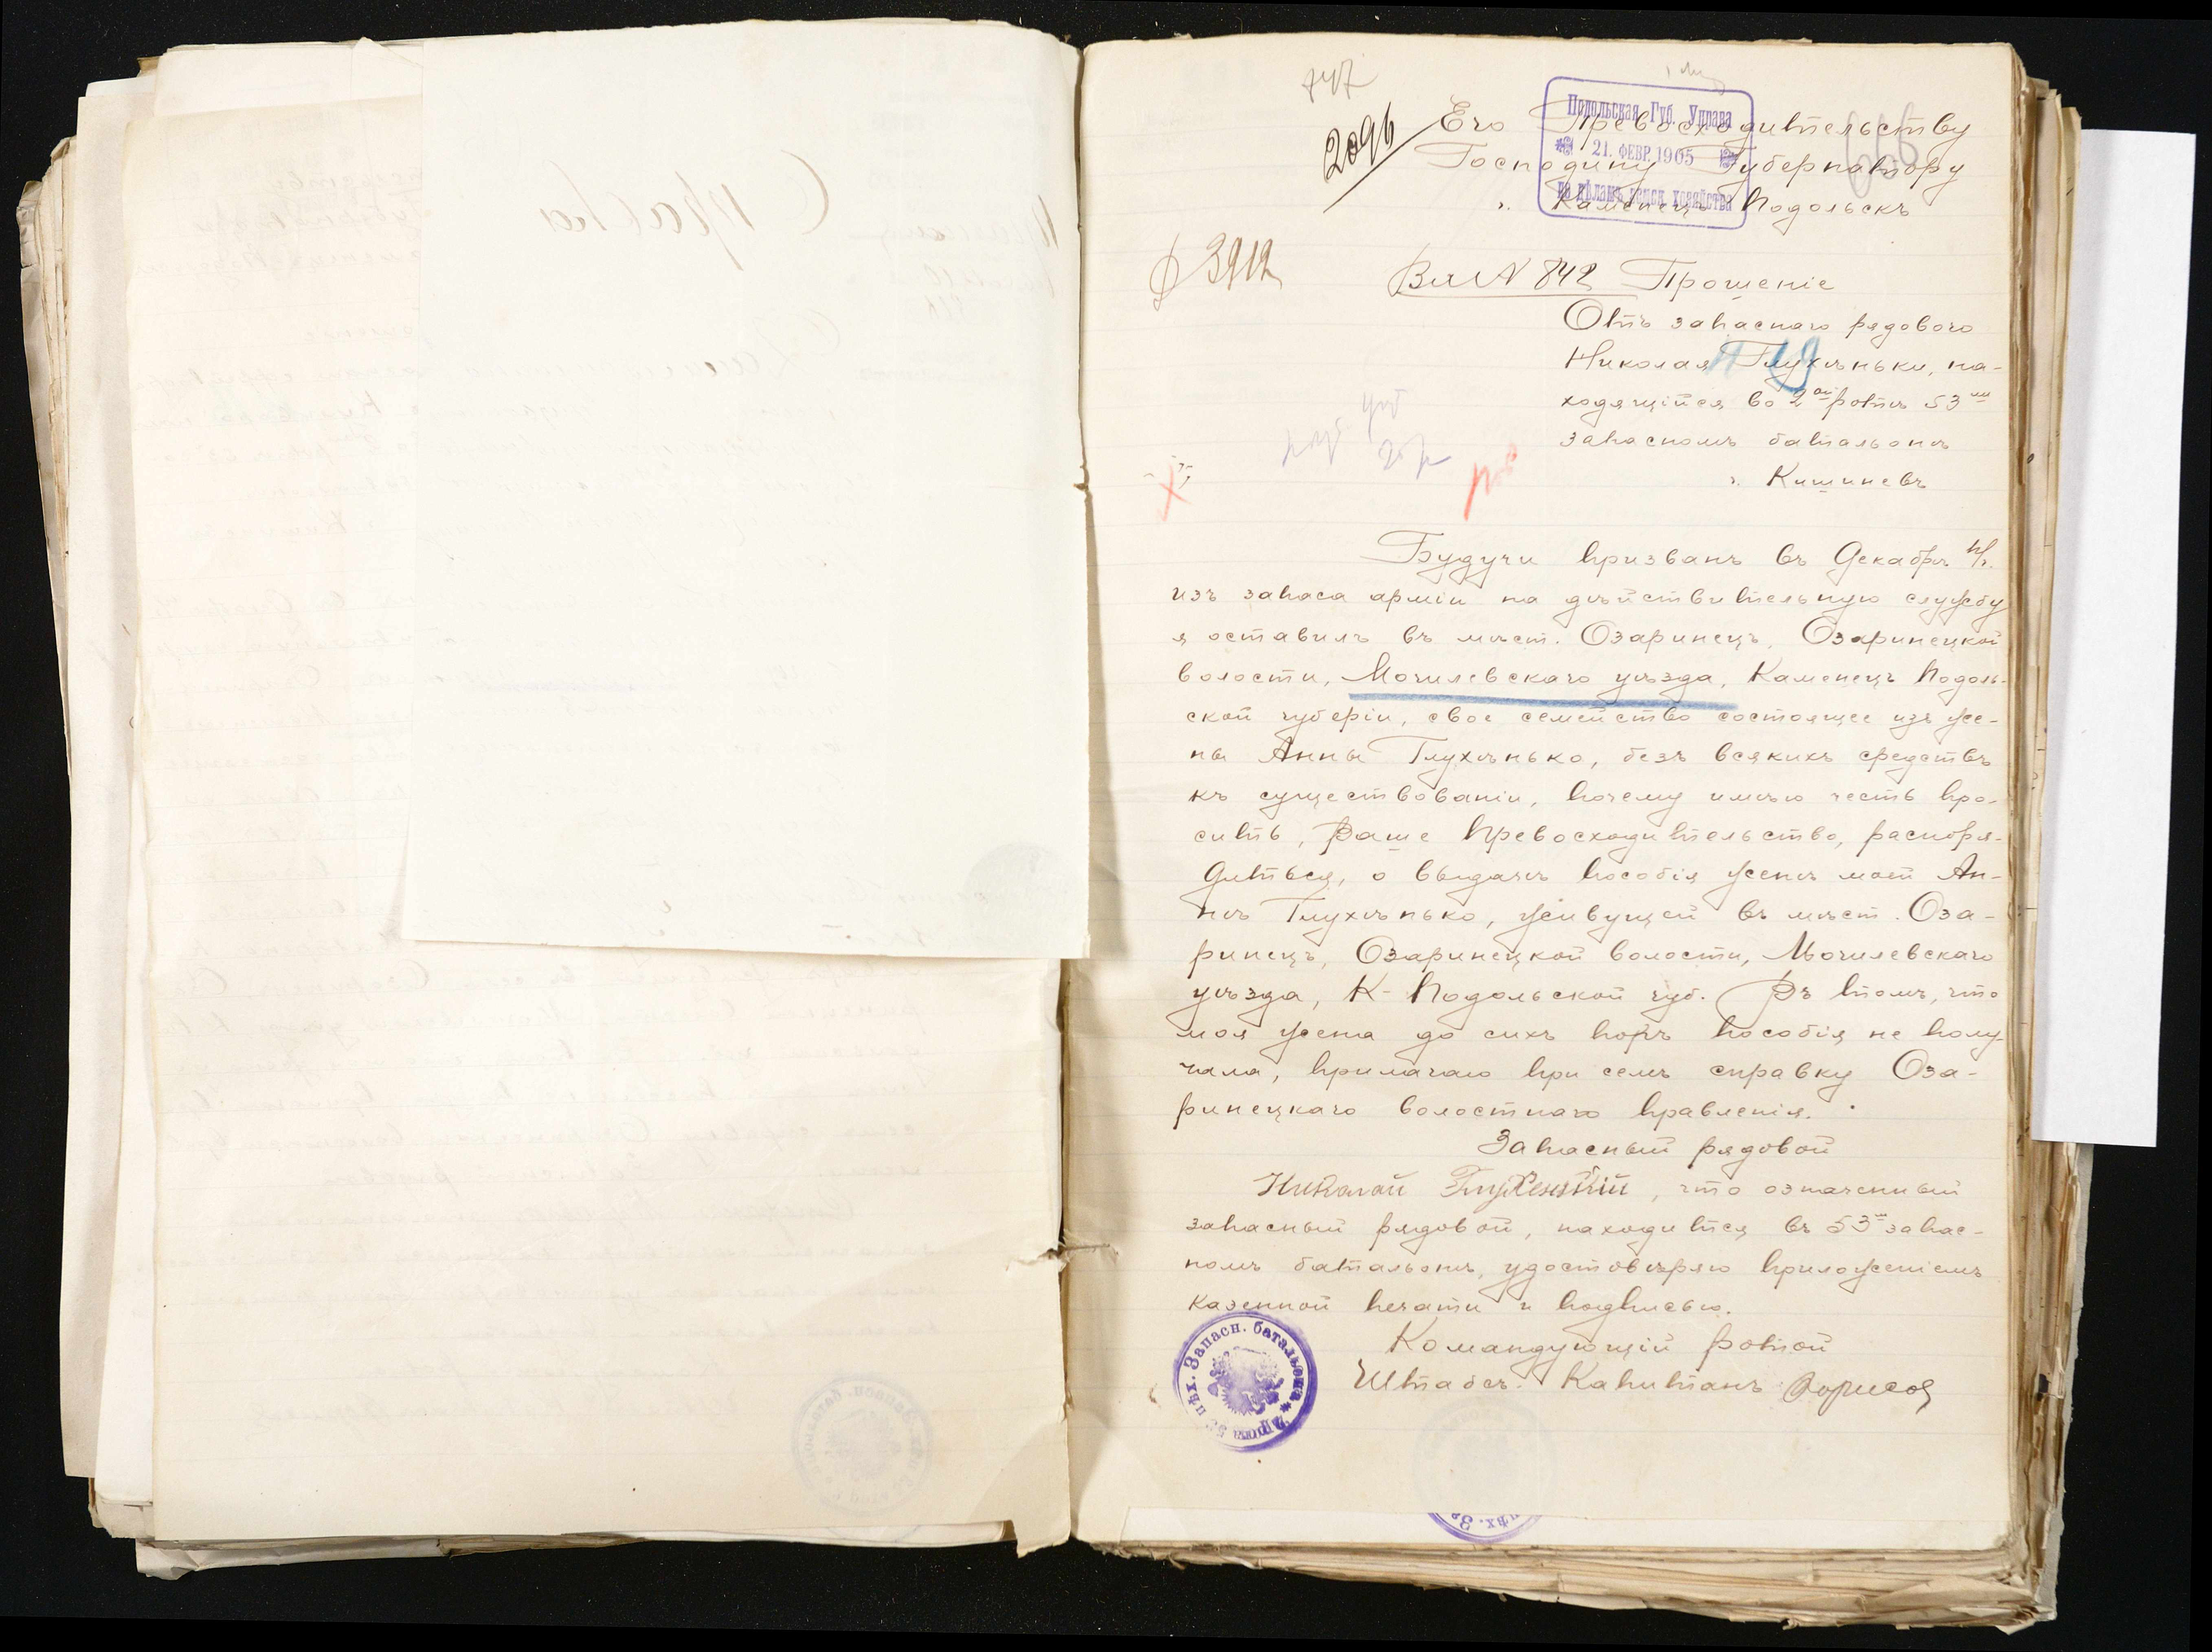 Справка
747
2096
Его Превосходительству
Господину Губернатору
г. Каменецъ Подольскъ
Подольская Губ. Управа
21. ФЕВР. 1905
по дѣламъ земск. хозяйства
3912
Вх N 842 Прошеніе
Отъ запаснаго рядового
Николая Глухѣньки, на-
ходящійся во 2ой ротѣ 53мъ
запасномъ баталіонѣ
г. Кишиневъ
Будучи призванъ въ Декабрѣ
изъ запаса арміи на дѣйствительную службу
я оставилъ въ мѣст. Озаринецъ, Озаринецкой
волости, Могилевскаго уѣзда, Каменецъ Подоль-
ской губеріи, свое семейство состоящее изъ же-
ны Анны Глухѣнько, безъ всякихъ средствъ
къ существованіи, почему имѣю честь про-
сить, Ваше Превосходительство, распоря-
диться, о выдачѣ пособія женѣ моей Ан-
нѣ Глухѣнько, живущей въ мѣст. Оза-
ринецъ, Озаринецкой волости, Могилевскаго
уѣзда, К-Подольской губ. Въ томъ, что
моя жена до сихъ поръ пособія не полу-
чала, прилагаю при семъ справку Оза-
ринецкаго волостнаго правленія.
Запасный рядовой
Николай Глухенькій, что означенный
запасный рядовой, находится въ 53мъ запас-
номъ баталіонѣ, удостовѣряю приложеніемъ
казенной печати и подписью.
Командующій ротой
Штабсъ-Капитанъ Борисов
пѣх. Запасн. батальона